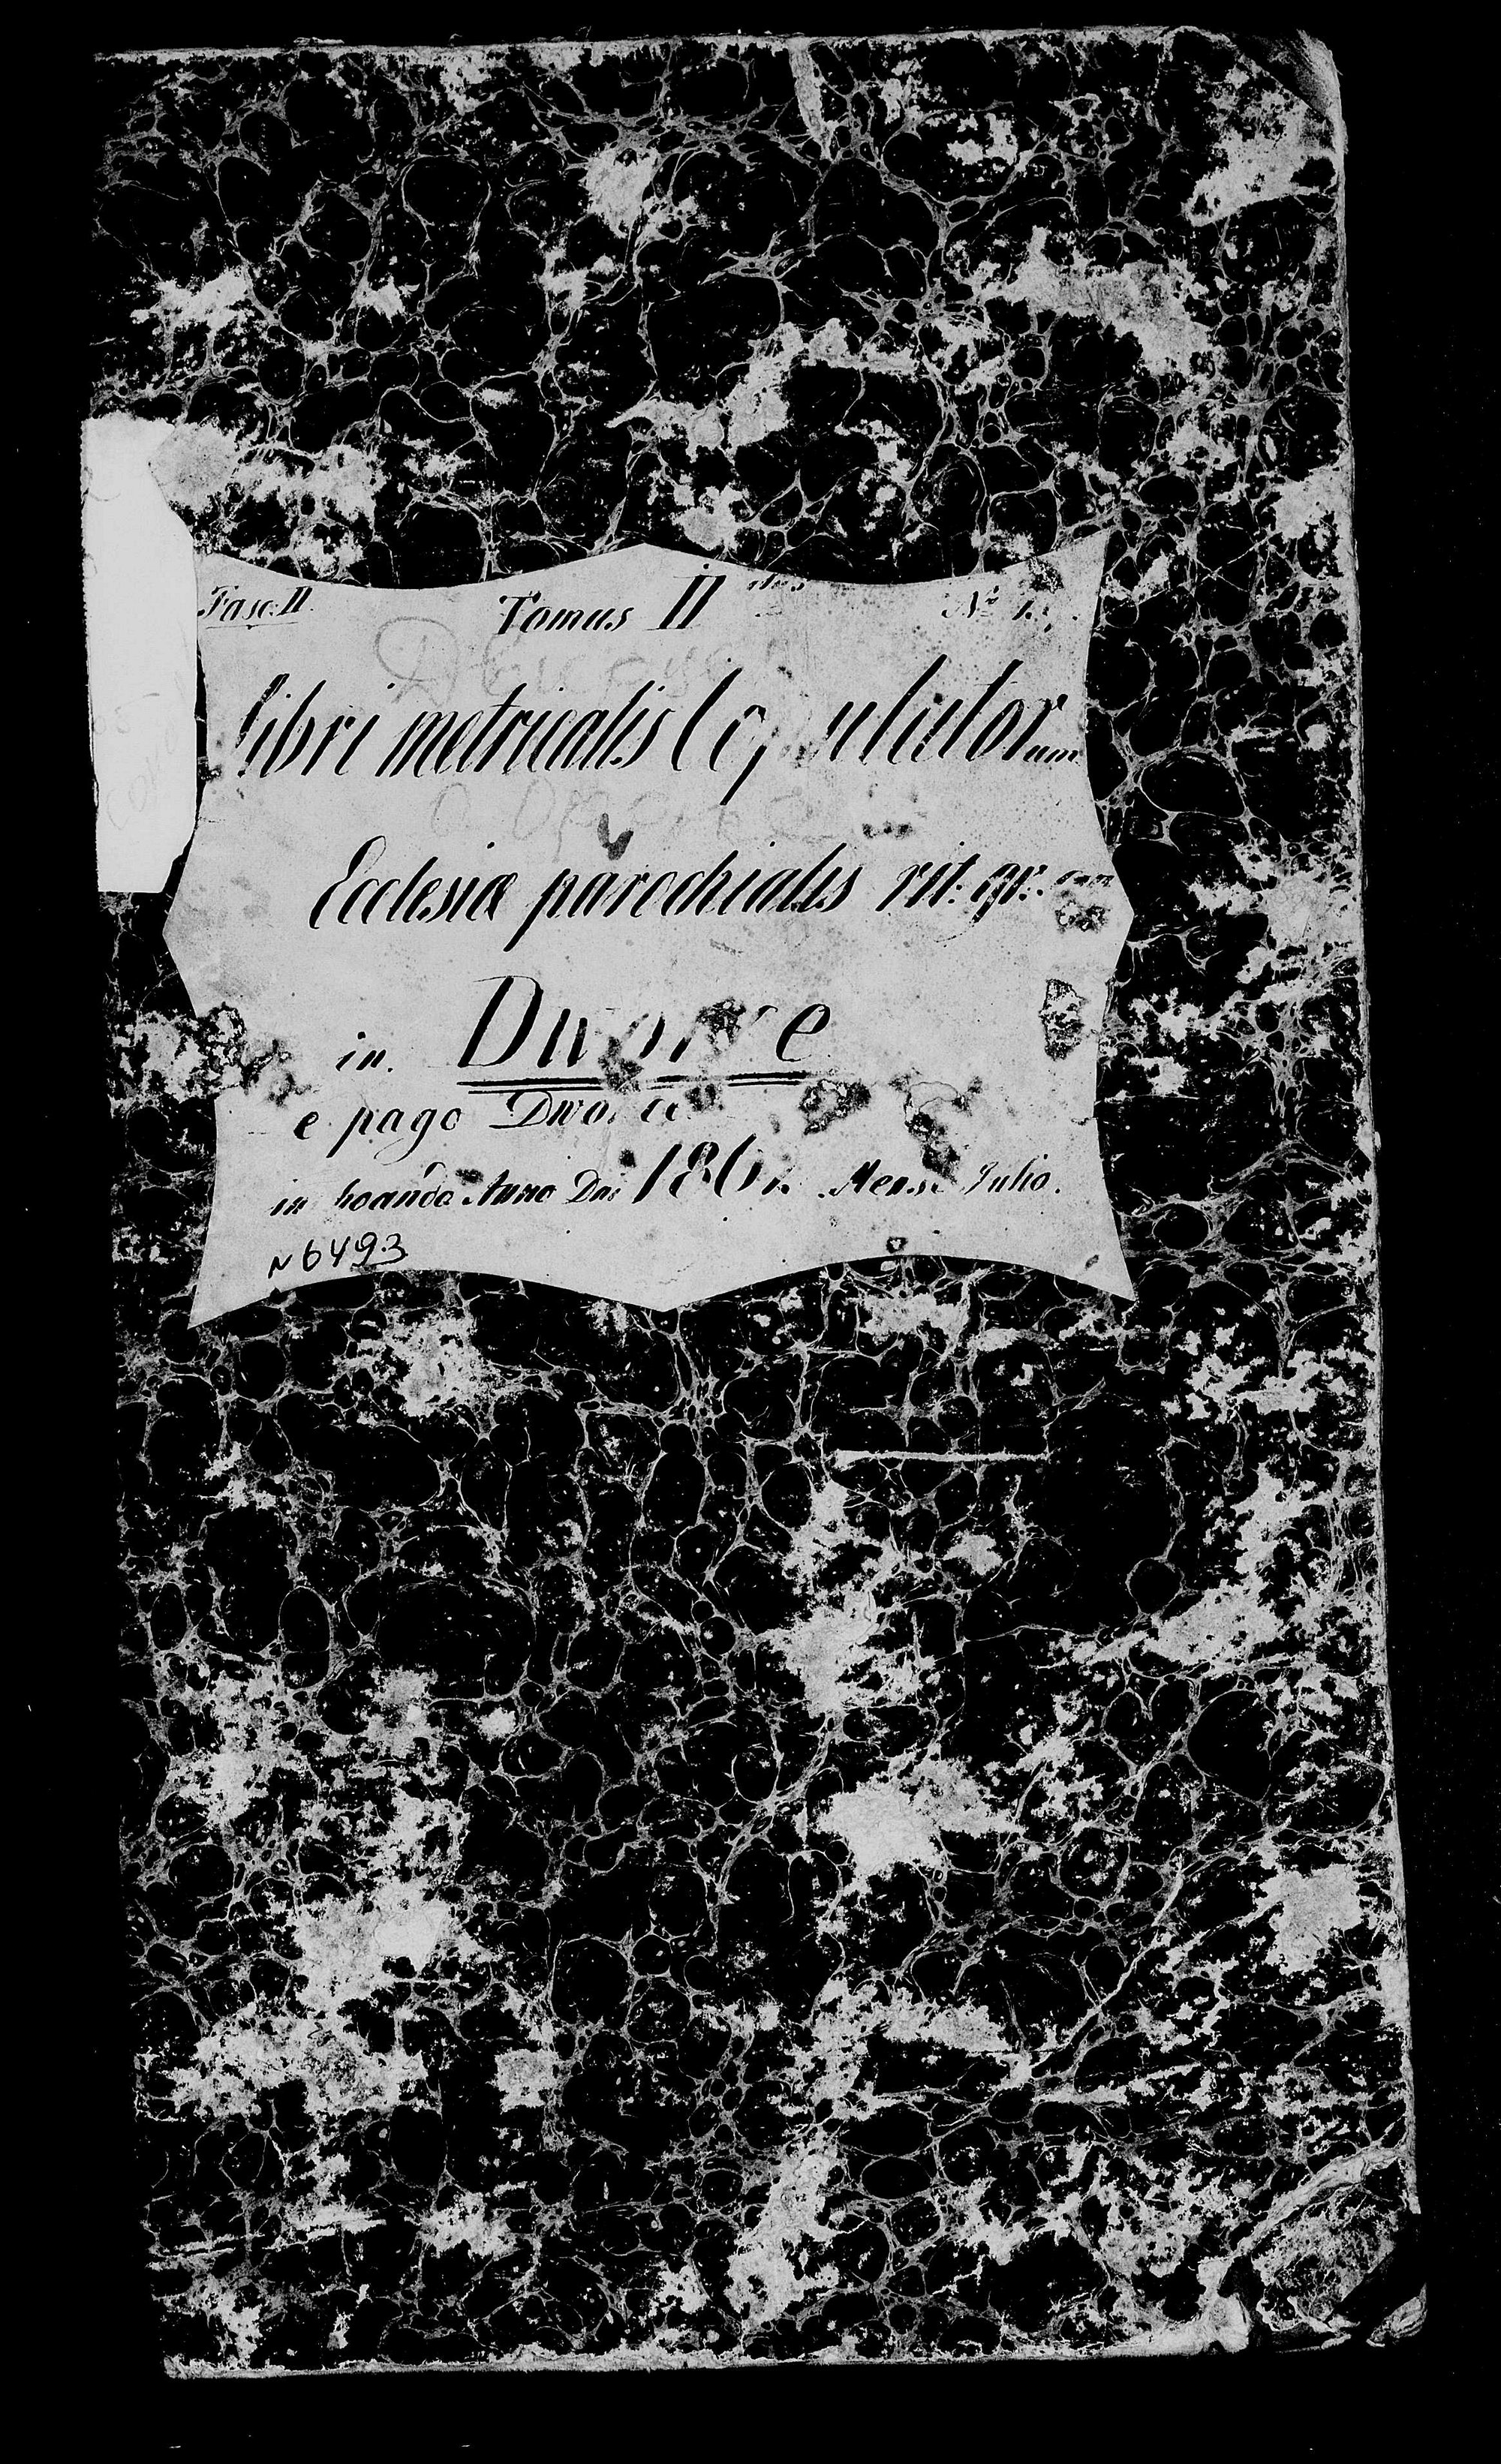 Fasc: II. Tomus II dus Nº
libri metricalis Copulatorum
Ecclesiæ parochialis rit. gr.
in. Dworce
e pago Dworce
inchoando Anno Dni 186 Mense Julio.
N 6493